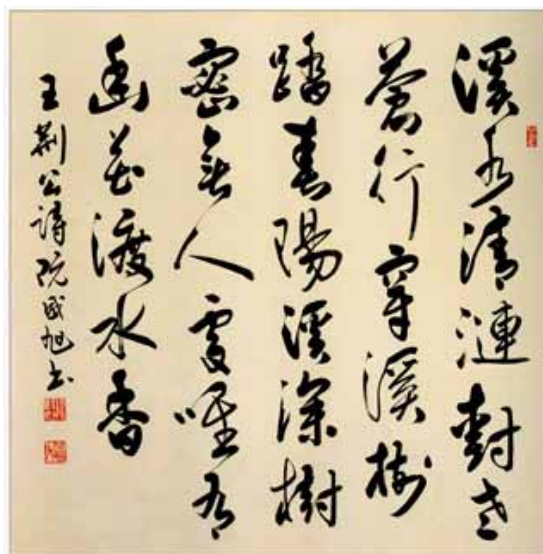 溪水清漣樹老
蒼行穿溪樹
踏春陽溪深樹
密無人處唯有
幽花渡水香
王荊公詩阮成旭書